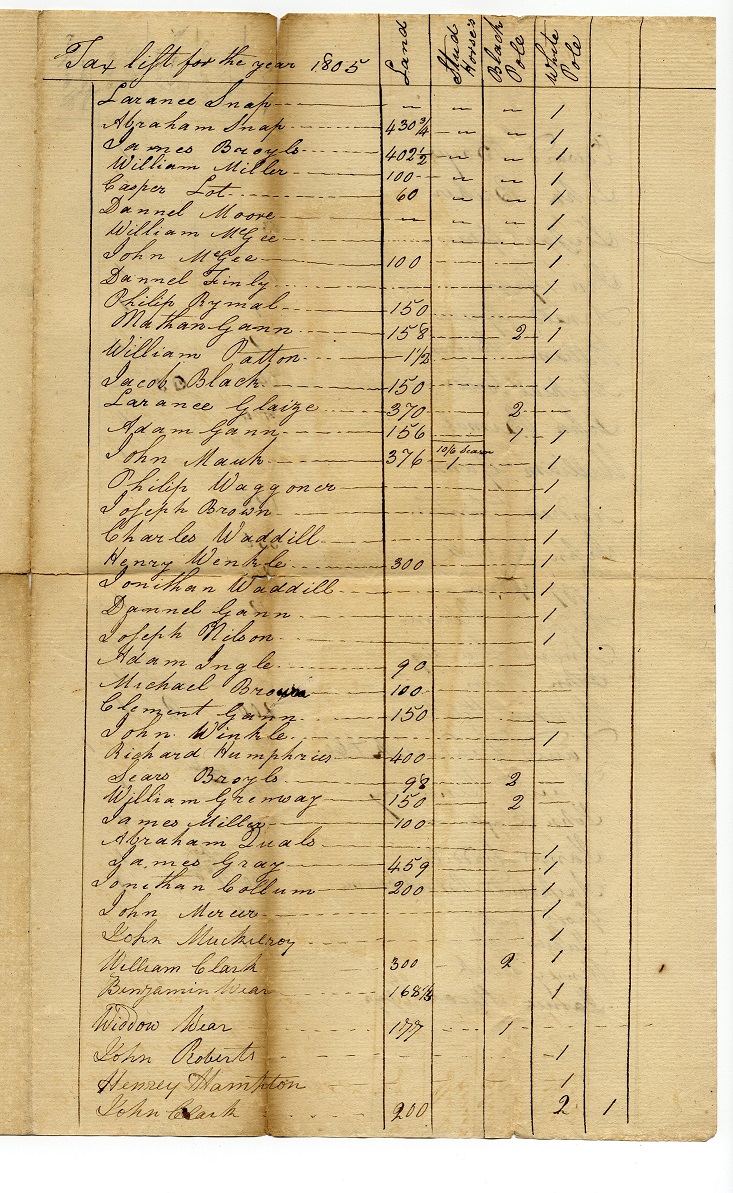 Tax list for the year 1805 Land Stud Horses Black Pole White Pole
Larance Snap — — — 1
Abraham Snap 430 3/4 — — 1
James Broyls 402 1/2 — — 1
William Miller 100 — — 1
Casper Lot 60 — — 1
Dannel Moore — — — 1
William McGee 1
John McGee 100 1
Dannel Finly 1
Philip Rymal 150 1
Nathan Gann 158 2 1
William Patton 1 1/2 1
Jacob Black 150 1
Larance Glaize 370 2 —
Adam Gann 156 1 1
John Mauk 376 1
Philip Waggoner 1
Joseph Brown 1
Charles Waddill 1
Henry Wenkle 300 1
Jonithan Waddill 1
Damnel Gann 1
Joseph Nilson 1
Adam Ingle 90
Michael Brown 100
Clement Gann 150 —
John Winkle 1
Richard Humphries 400 —
Sears Broyls 98 2 —
William Grenway 150 2 —
James Miller 100 —
Abraham Duals 1
James Gray 459 1
Jonithan Collum 200 1
John Mercer 1
John Muckilroy 1
William Clark 300 2 1
Benjamin Wear 168 1/3 1
Widdow Wear 177 1
John Roberts 1
Henrey Hampton 1
John Clark 200 2 1